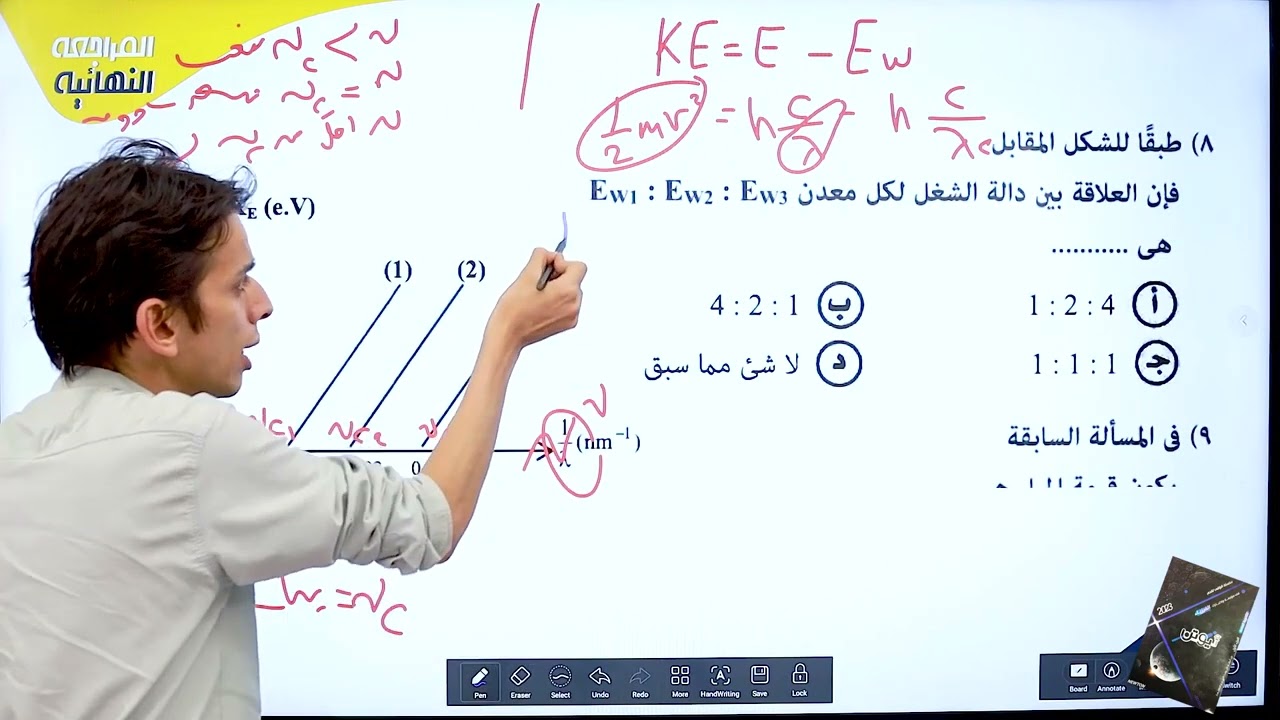 المراجعه
النهائيه
KE = E - Ew
1/2 mv² = h c/λ - h c/λc
٨) طبقًا للشكل المقابل
فإن العلاقة بين دالة الشغل لكل معدن EW1 : EW2 : EW3
هى ...........
أ 1 : 2 : 4
ب 4 : 2 : 1
جـ 1 : 1 : 1
د لا شئ مما سبق
E (e.V)
(1)
(2)
1/λ (nm⁻¹)
٩) فى المسألة السابقة
2023
نيوتن
NEWTON
Pen
Eraser
Select
Undo
Redo
More
HandWriting
Save
Lock
Board
Annotate